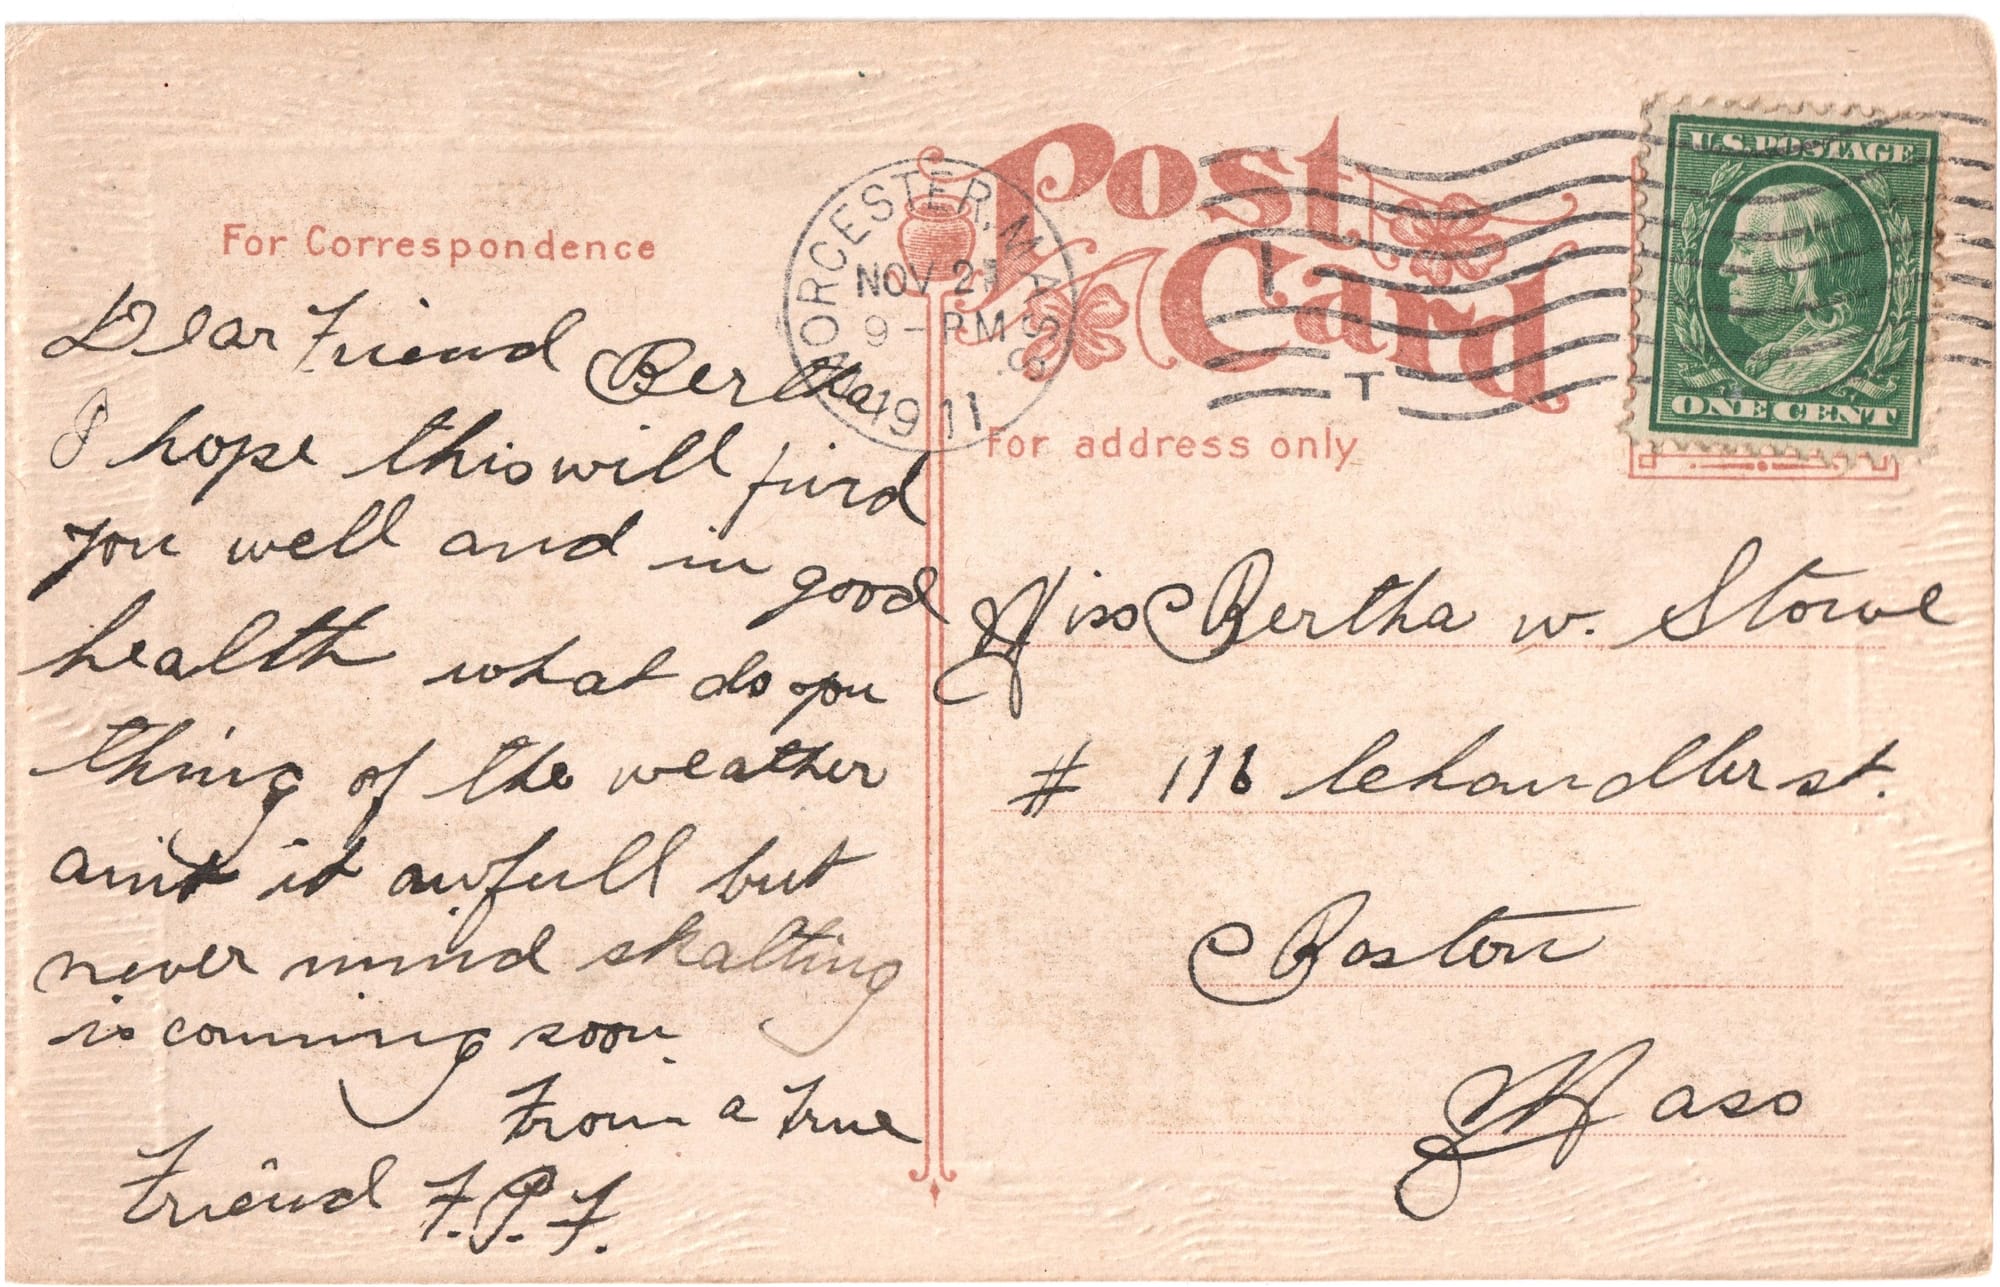 Post
Card
For Correspondence
WORCESTER, MASS.
NOV 27
9 - PM
1911
1
T
U.S. POSTAGE
ONE CENT
For address only
Dear Friend Bertha
I hope this will find
you well and in good
health what do you
thing of the weather
aint it awfull but
never mind skatting
is comming soon.
From a true
Friend F.P.F.
Miss Bertha w. Stowe
# 116 Chandler st.
Boston
Mass